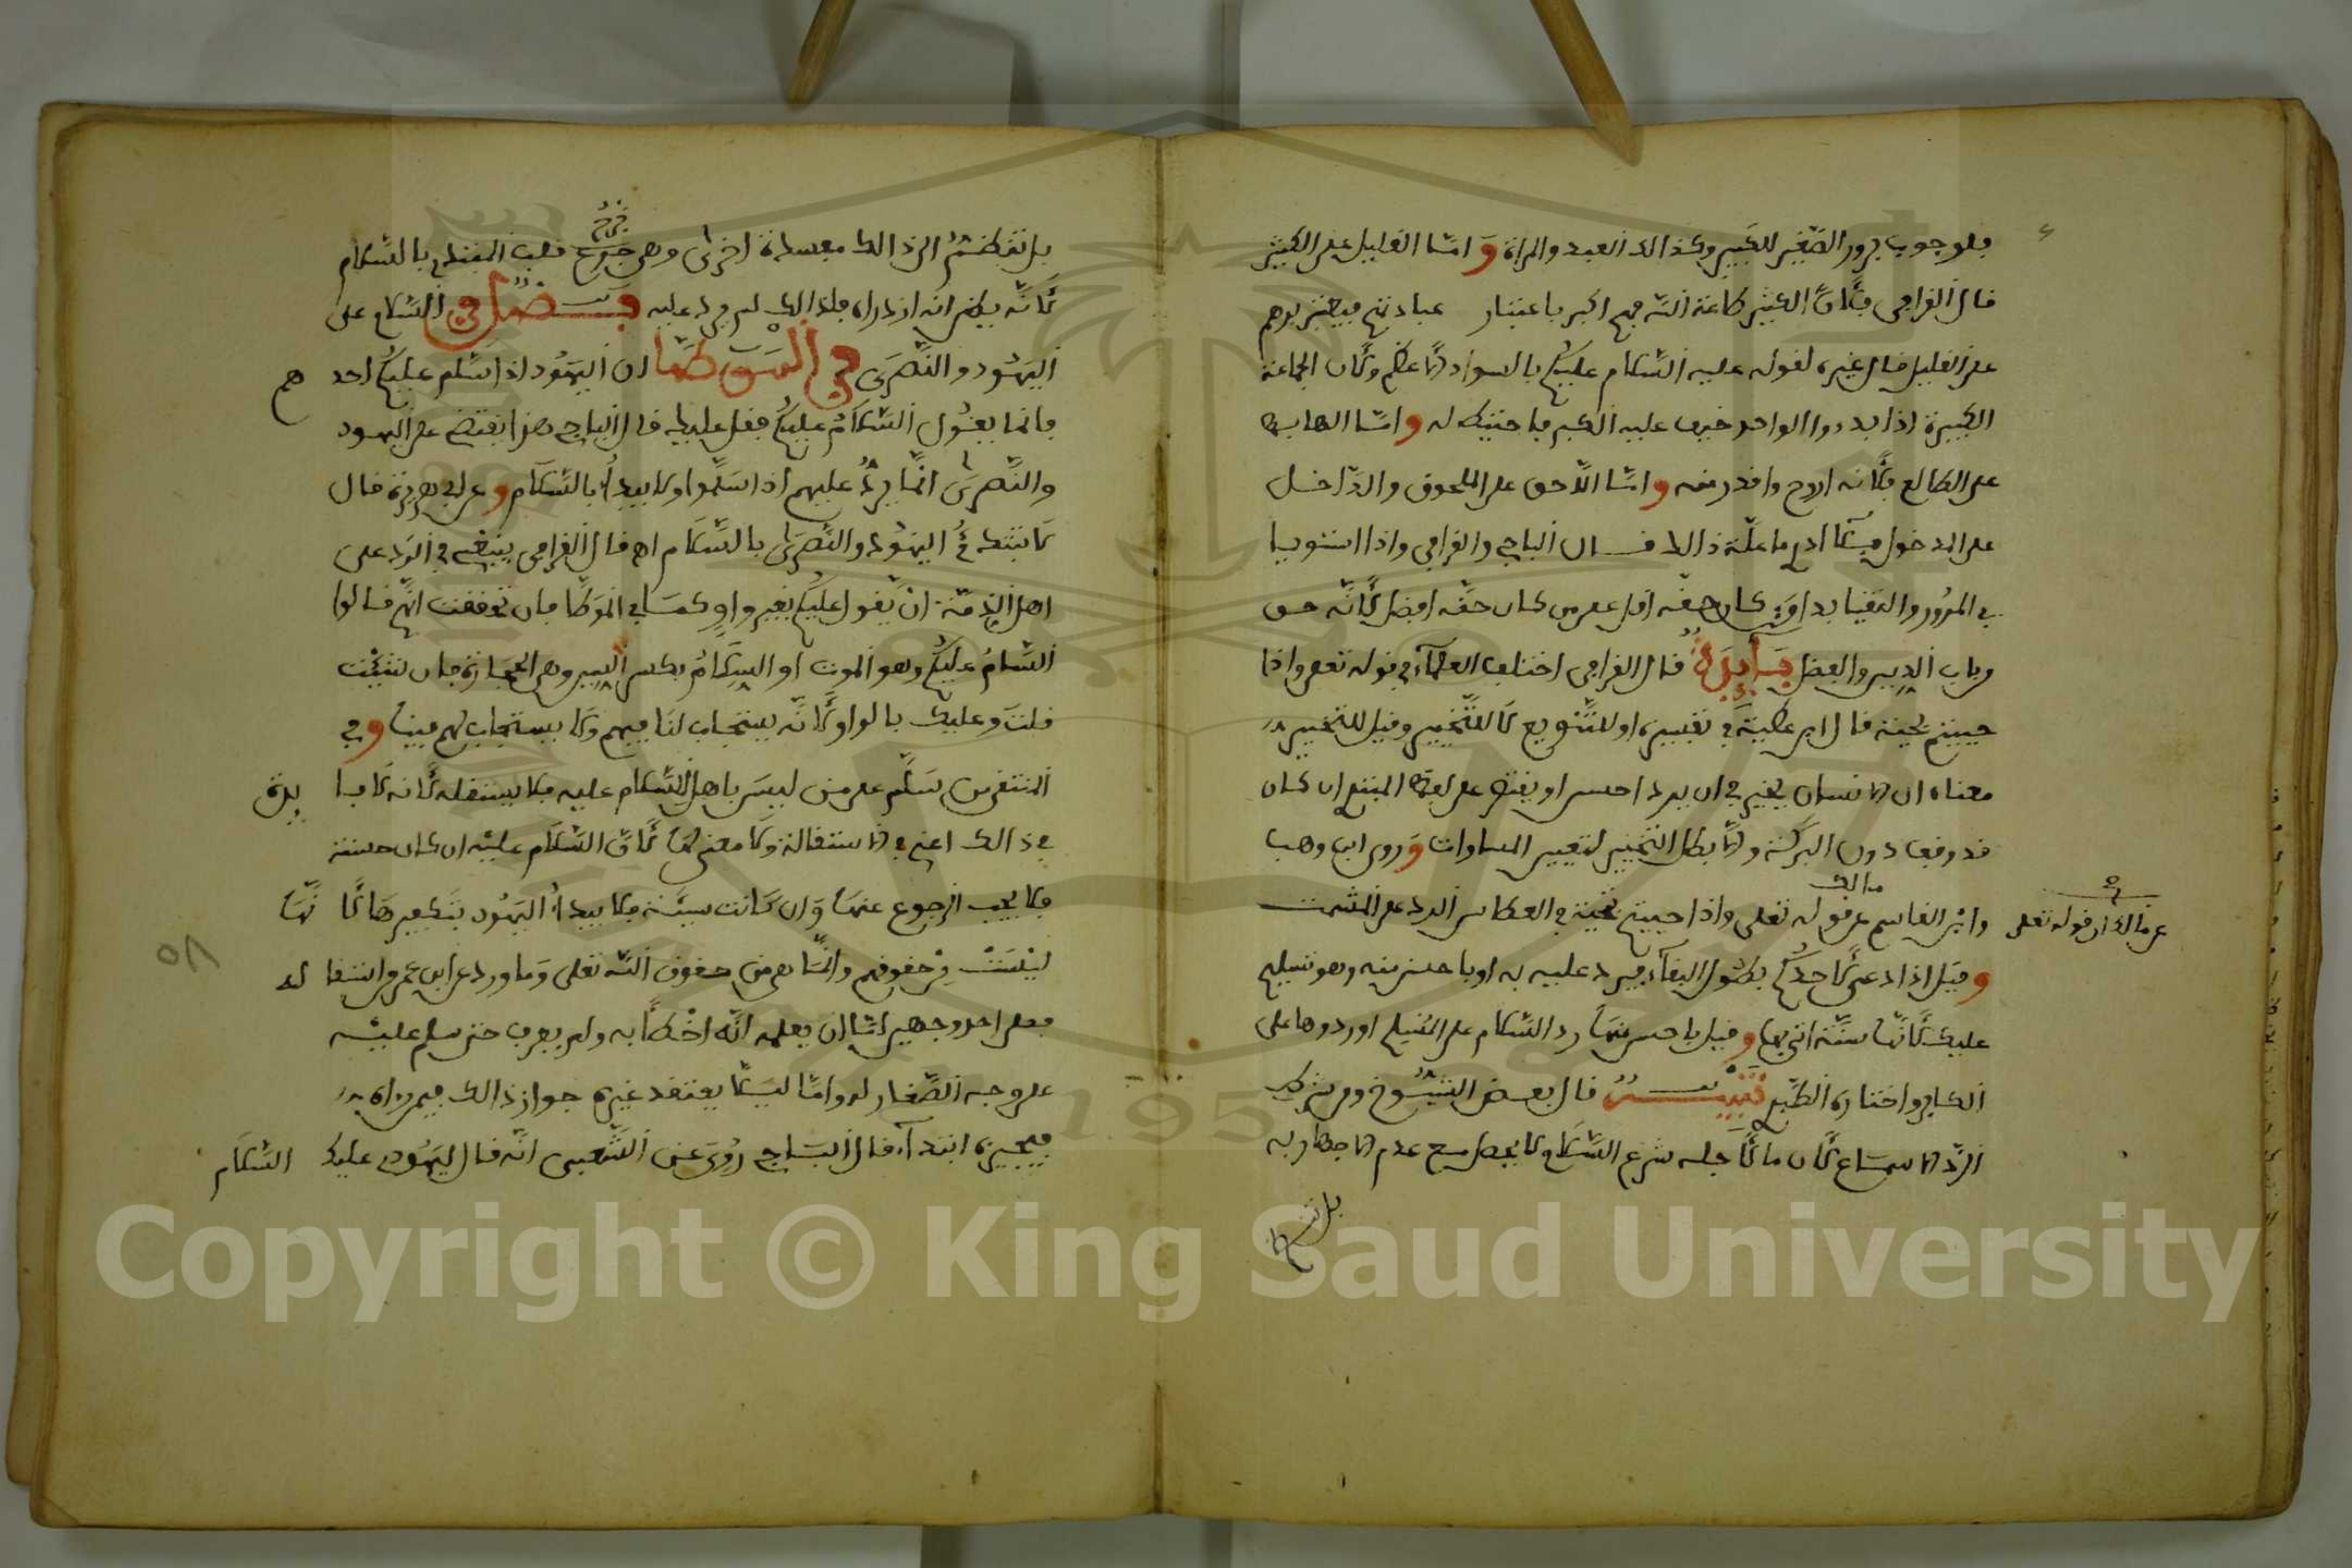 فلوجوب برور الصغير للكبير وكذالك العبد والمراة واما القليل على الكثير
قال القرافي فلأن الكثير طاعة الله فيهم اكبر باعتبار عبادتهم فيعتز برهم
على القليل قال غيره لقوله عليه السلام عليكم بالسواد الاعظم ولأن الجماعة
الكبيرة اذا بدءوا الواحد خيف عليه الكبر فاحتيط له واما الهابط
على الطالع فلأنه اروح واقدر منه واما اللاحق على الملحوق والداخل
على المدخول فلا ادري ما علة ذالك قال الباجي والقرافي واذا استويا
في المرور والتقيا بدا من كان حقه اقل على من كان حقه افضل لأنه حق
من باب الدين والفضل فايدة قال القرافي اختلف العلماء في قوله تعلى واذا
حييتم بتحية قال ابن عطية في تفسيره او للتنويع لا للتخيير وقيل للتخيير
معناه ان الانسان يخير في ان يرد احسن او يقتصر على لفظ المبتدي ان كان
قد وقف دون البركة والا بطل التخيير لتعيين المساوات وروى ابن وهب
مالك
وابن القاسم عن قوله تعلى واذا حييتم بتحية في العطاس الرد على المشمت
عن مالك ان قوله تعلى
وقيل اذا دعي لأحدكم بطول البقاء فيرد عليه به او باحسن منه وهو تسليم
عليك لأنها سنة اتي بها وقيل باحسن منها رد السلام على المسلم او ردوها على
الكافر واختاره الطبري تنبيه قال بعض الشيوخ ومن شرط
الرد الاسماع لأن ما لأجله شرع السلام لا يحصل مع عدم الاجهار به
بل تتـ
بل تتطرق الى ذالك مفسدة اخرى وهي جرح قلب المبتدي بالسلام
لأنه يظن انه ازدراه فلذالك لم يرد عليه فصل في السلام على
اليهود والنصرى في الموطا ان اليهود اذا سلم عليكم احدهم
فانما يقول السام عليكم فقل عليك قال الباجي هذا يقتضي على اليهود
والنصرى انما يرد عليهم اذا سلموا ولا يبدأ بالسلام وعن ابي هريرة قال
لا تبتدئ اليهود والنصرى بالسلام اهـ قال القرافي ينبغي في الرد على
اهل الذمة ان يقول عليكم بغير واو كما في الموطا فان تحققت انهم قالوا
السام عليكم وهو الموت او السلام بكسر السين وهي الحجارة فان شئت
قلت وعليك بالواو لأنه يستجاب لنا فيهم ولا يستجاب لهم فينا وفي
المنتقى من سلم على من ليس باهل للسلام عليه فلا يستقله لأنه لا فايدة
في ذالك اعني في الاستقالة ولا معنى لها لأن السلام عليه ان كان حسنة
فلا يجب الرجوع عنها وان كانت سيئة فلا يبدأ اليهود بتكفيرها لأنها
ليست من حقوقهم وانما هي من حقوق الله تعلى وما ورد عن ابن عمر من استقاله
فعلى احد وجهين اما ان يعلمه انه اخطأ به ولم يعرف حين سلم عليه
على وجه الصغار له واما ليلا يعتقد غيره جواز ذالك فيمن راه
فيجيزه ابتداء قال الباجي روي عن الشعبي انه قال ليهودي عليك السلام